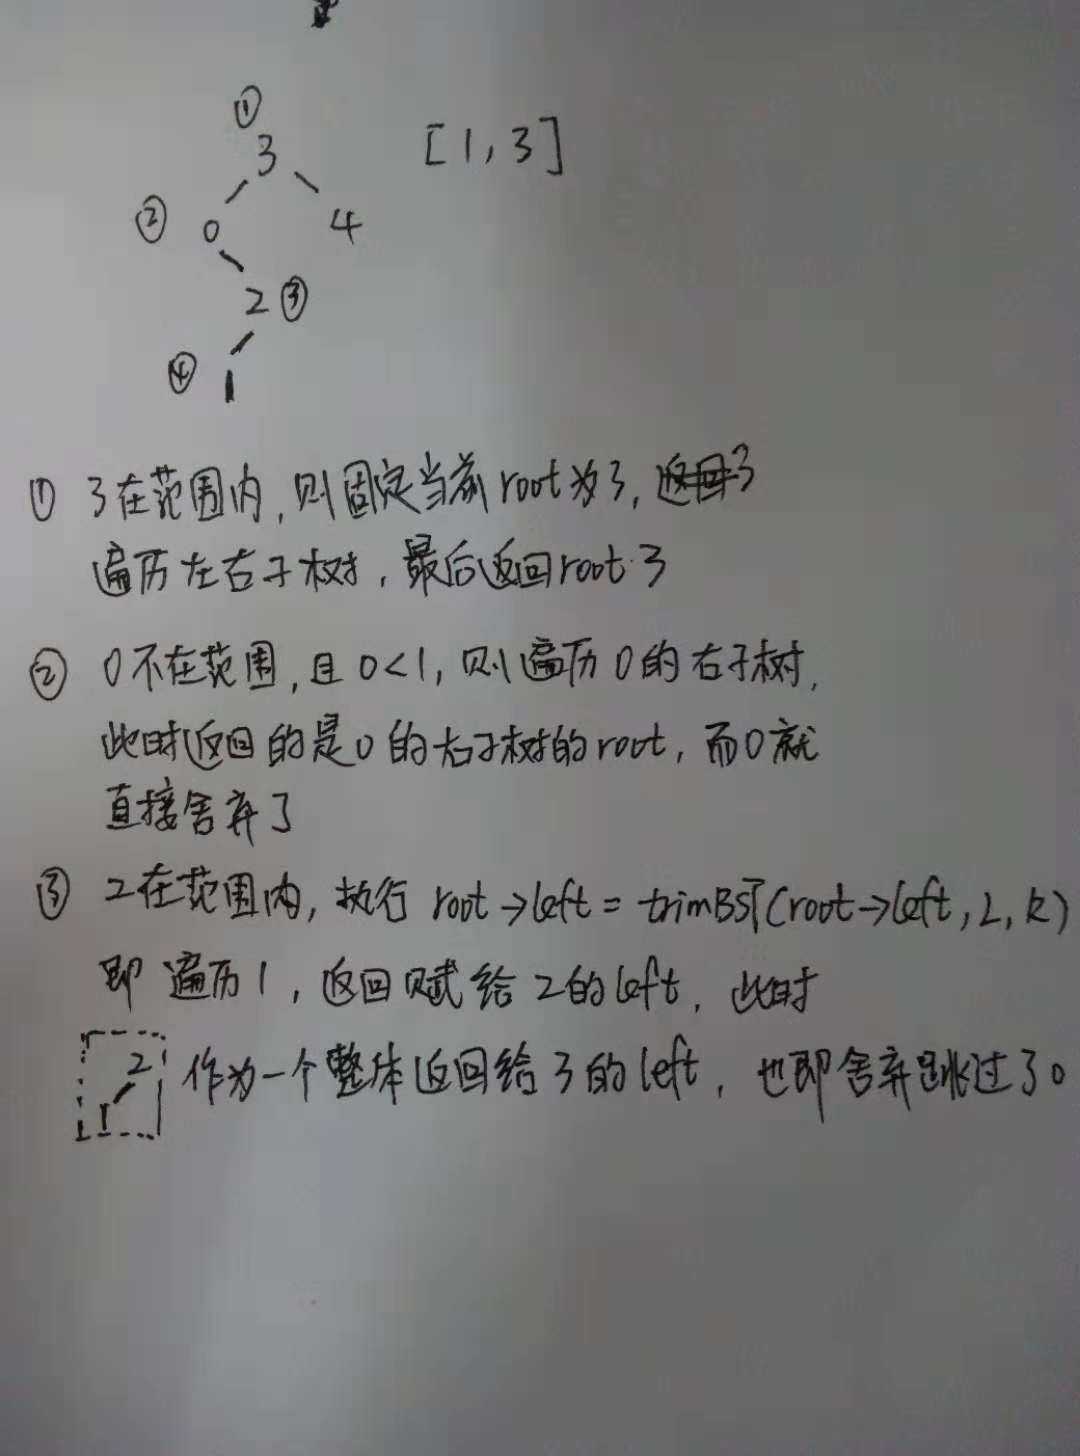 ①
3 [1,3]
② 0 4
2 ③
④ 1
① 3在范围内,则固定当前root为3,返回3
遍历左右子树,最后返回root 3
② 0不在范围,且0<1,则遍历0的右子树,
此时返回的是0的右子树的root,而0就
直接舍弃了
③ 2在范围内,执行 root→left = trimBST(root→left, L, R)
即 遍历1,返回赋给2的left,此时
2
1 作为一个整体返回给3的left,也即舍弃跳过了0